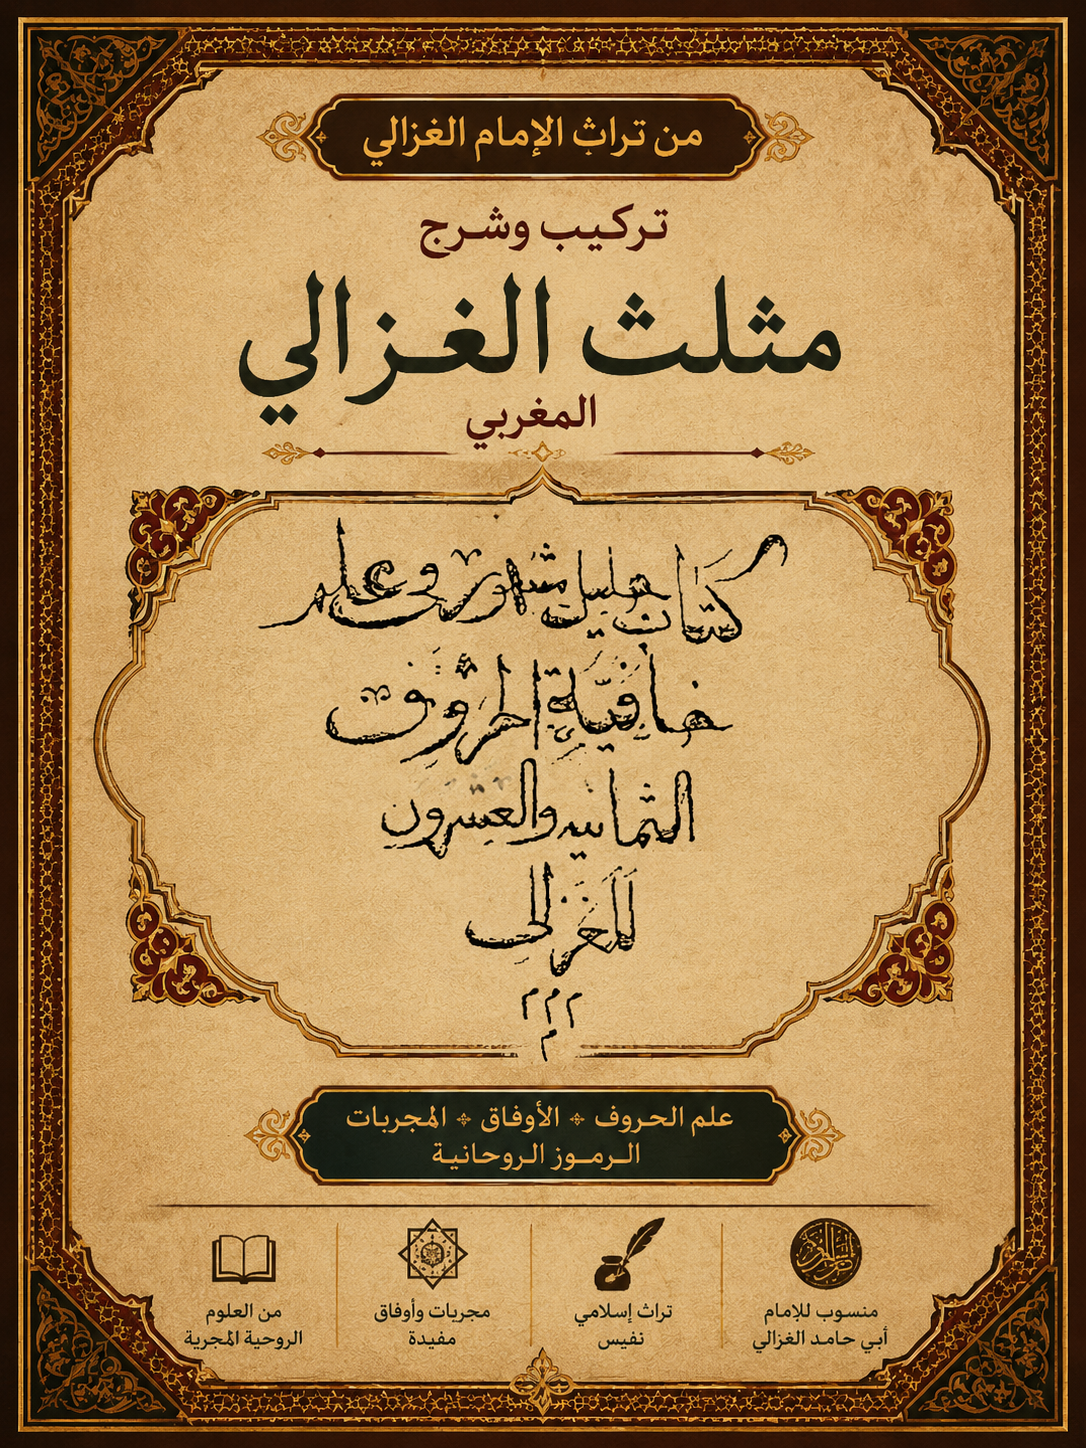 من تراث الإمام الغزالي
تركيب وشرج
مثلث الغزالي
المغربي
كتاب جليل مشهور في علم
خافية الحروف
الثمانيه والعشرون
للغزالى
م م م
م
علم الحروف الأوفاق المجربات
الرموز الروحانية
منسوب للإمام
أبي حامد الغزالي
تراث إسلامي
نفيس
مجربات وأوفاق
مفيدة
من العلوم
الروحية المجرية